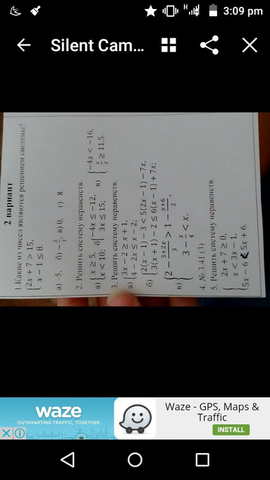 3:09 pm
Silent Cam...
2 вариант
1 Какие из чисел являются решением системы?
{2x + 7 > 15,
x − 1 ≤ 8.
а) −5, в) 0, г) 8
2. Решить систему неравенств.
а) {x ≥ 5, б) {−4x ≤ −12, в) {−4x < −16,
x < 10; 3x ≤ 15; ≥ 11,5.
3. Решить систему неравенств.
а) {3x − 2 ≥ x + 1,
4 − 2x ≤ x − 2;
б) {2(x − 1) − 3 < 5(2x − 1) − 7x,
3(x + 1) − 2 ≤ 6(x − 1) + 7x;
в) {2 − 3+2x/3 > 1 − x+6/2,
3 − x/4 < x.
4. № 3.41 (3)
5. Решить систему неравенств.
{2x + 7 ≥ 0,
x < 3x + 1,
5x − 6 < 5x + 6.
waze
OUTSMARTING TRAFFIC, TOGETHER
Waze - GPS, Maps & Traffic
INSTALL